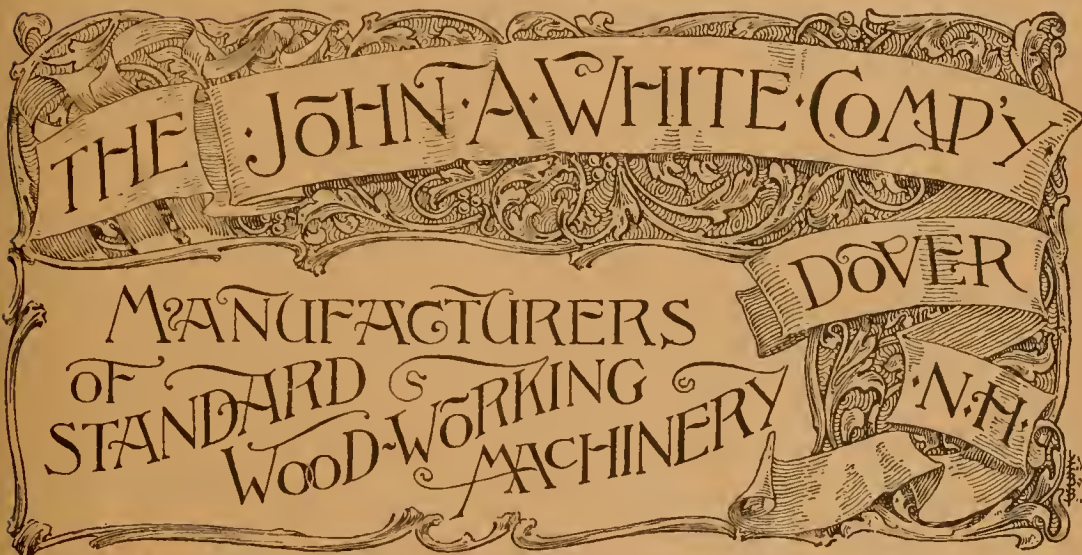 THE ·JOHN·A·WHITE·COMP'Y·
DOVER
·N·H·
MANUFACTURERS
OF
STANDARD
WOOD-WORKING
MACHINERY